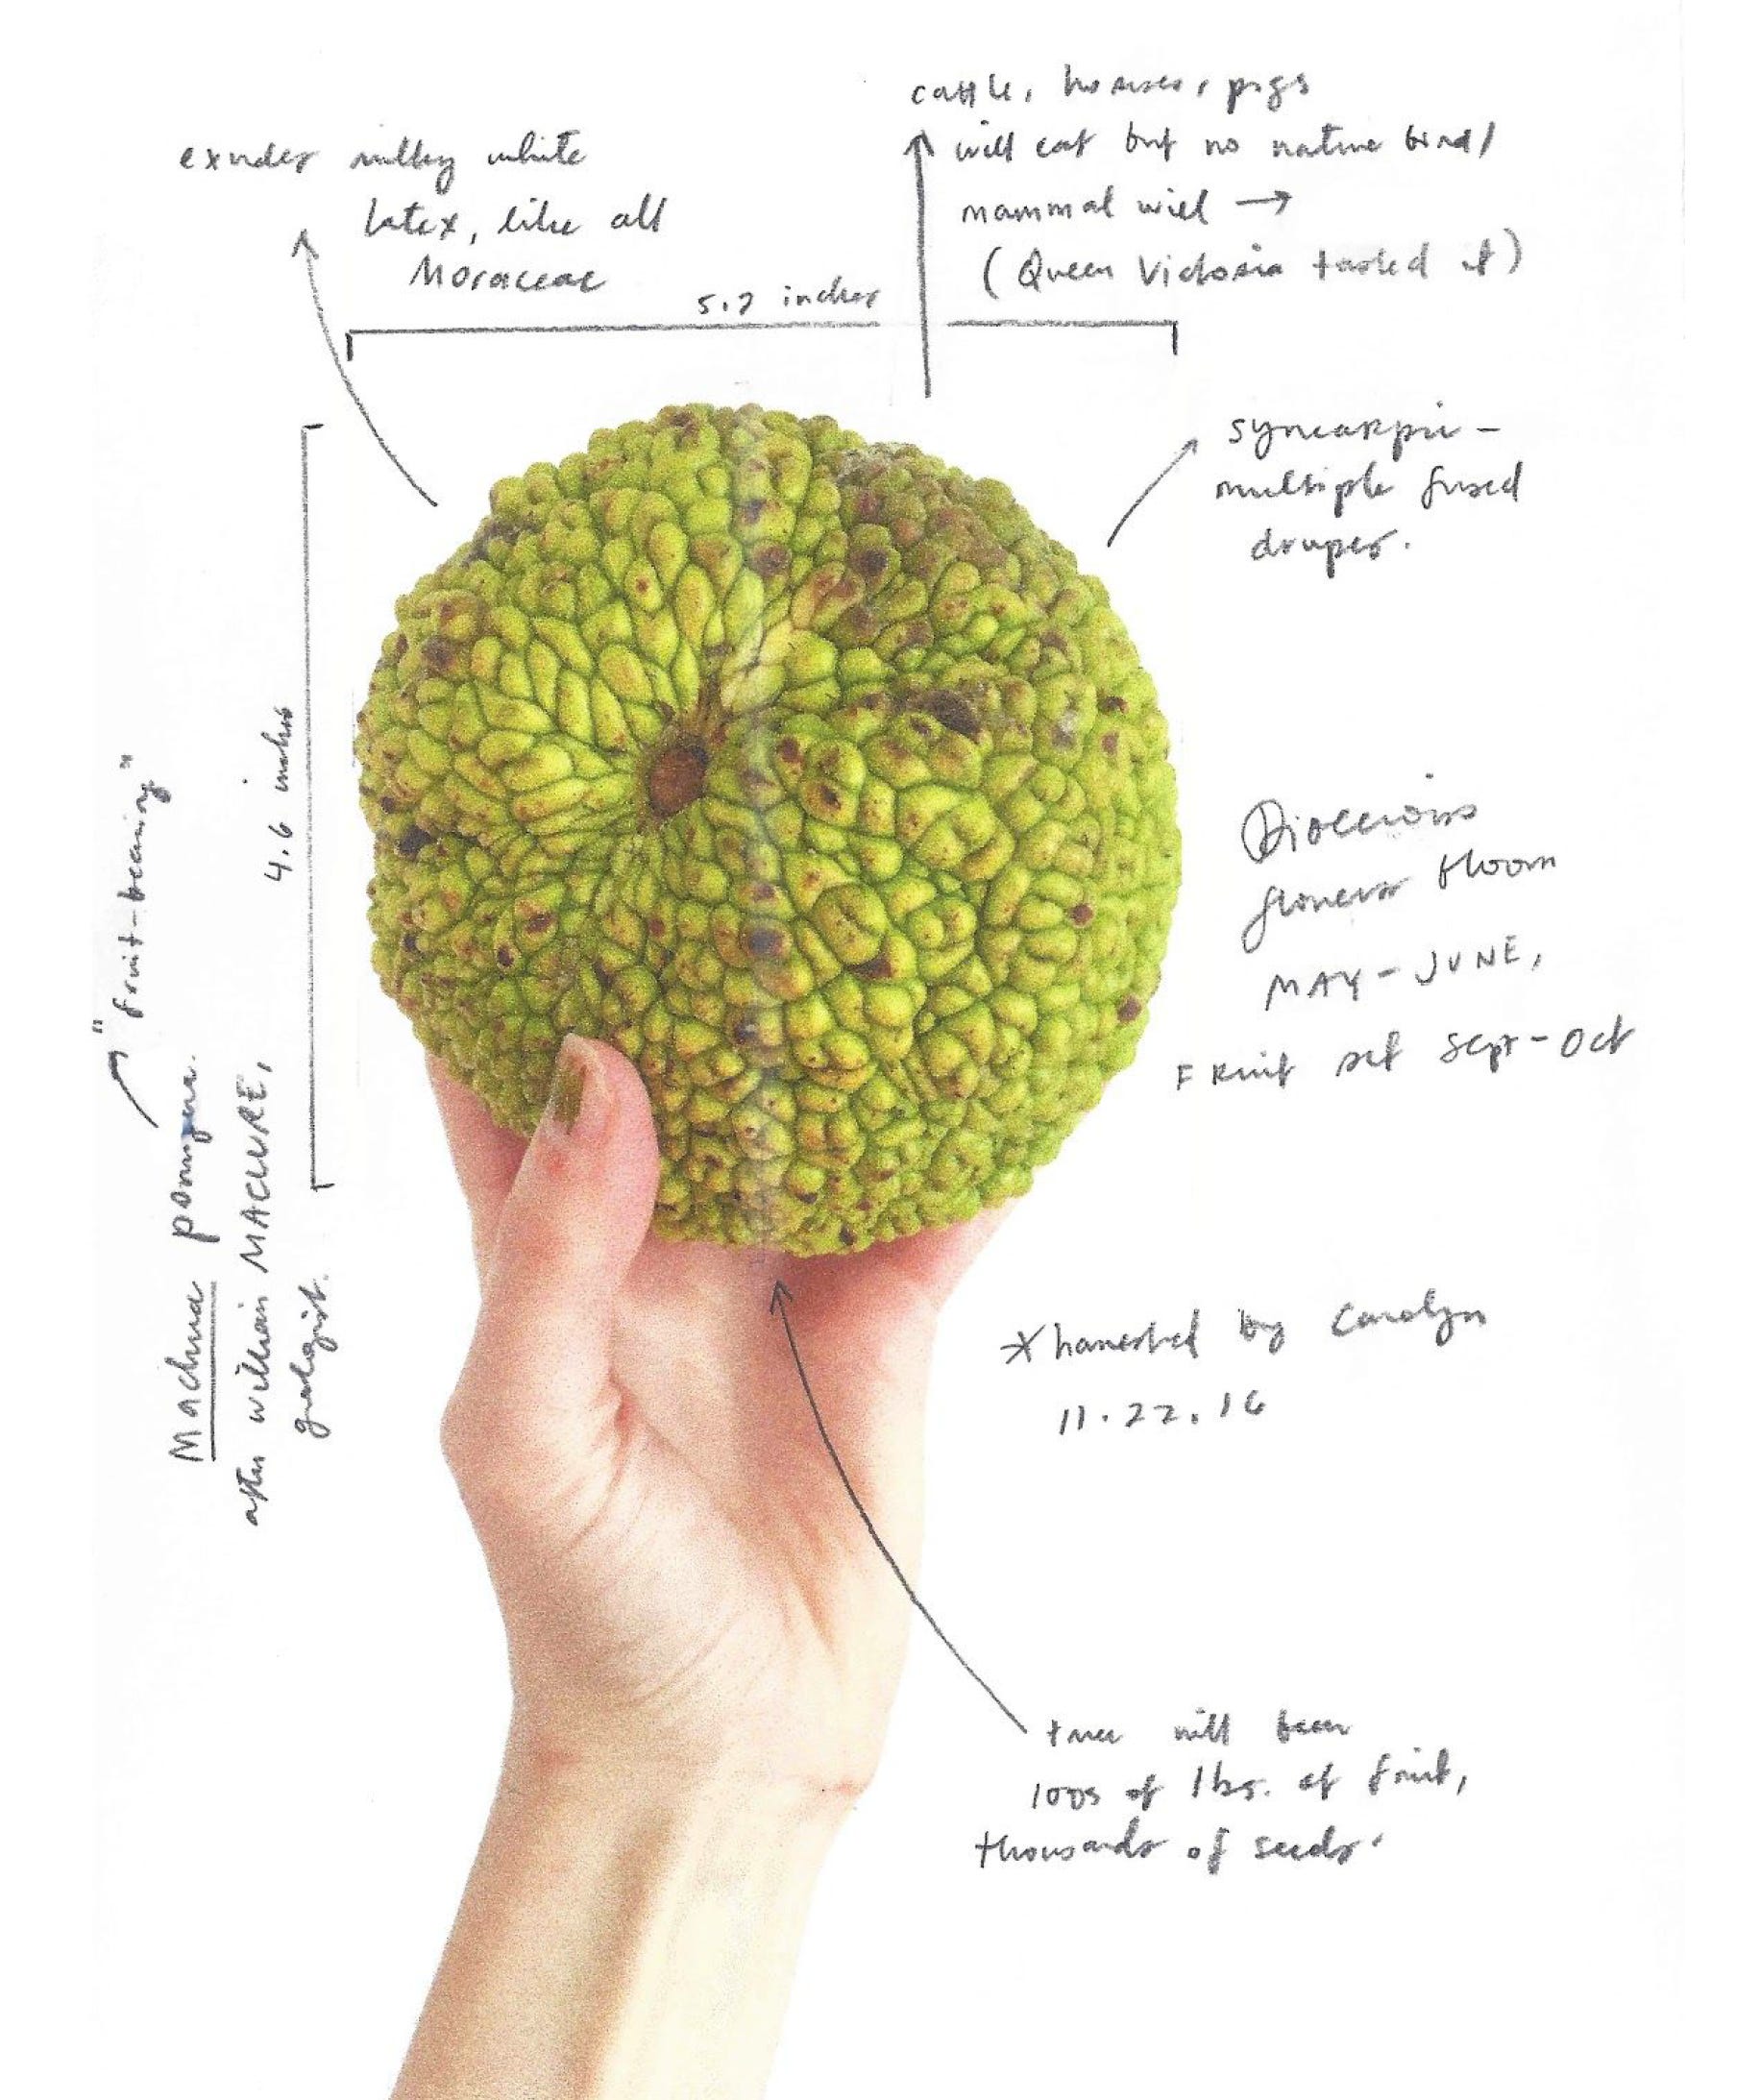 cattle, horses, pigs
will eat but no native bird/
mammal will →
(Queen Victoria tasted it)
exudes milky white
latex, like all
Moraceae
5.2 inches
syncarpic -
multiple fused
drupes.
4.6 inches
"fruit-bearing"
Maclura pomifera.
after william MACLURE,
geologist.
Dioecious
flowers bloom
MAY - JUNE,
FRuit set Sept - Oct
* harvested by Carolyn
11.22.16
tree will bear
100s of lbs. of fruit,
thousands of seeds.